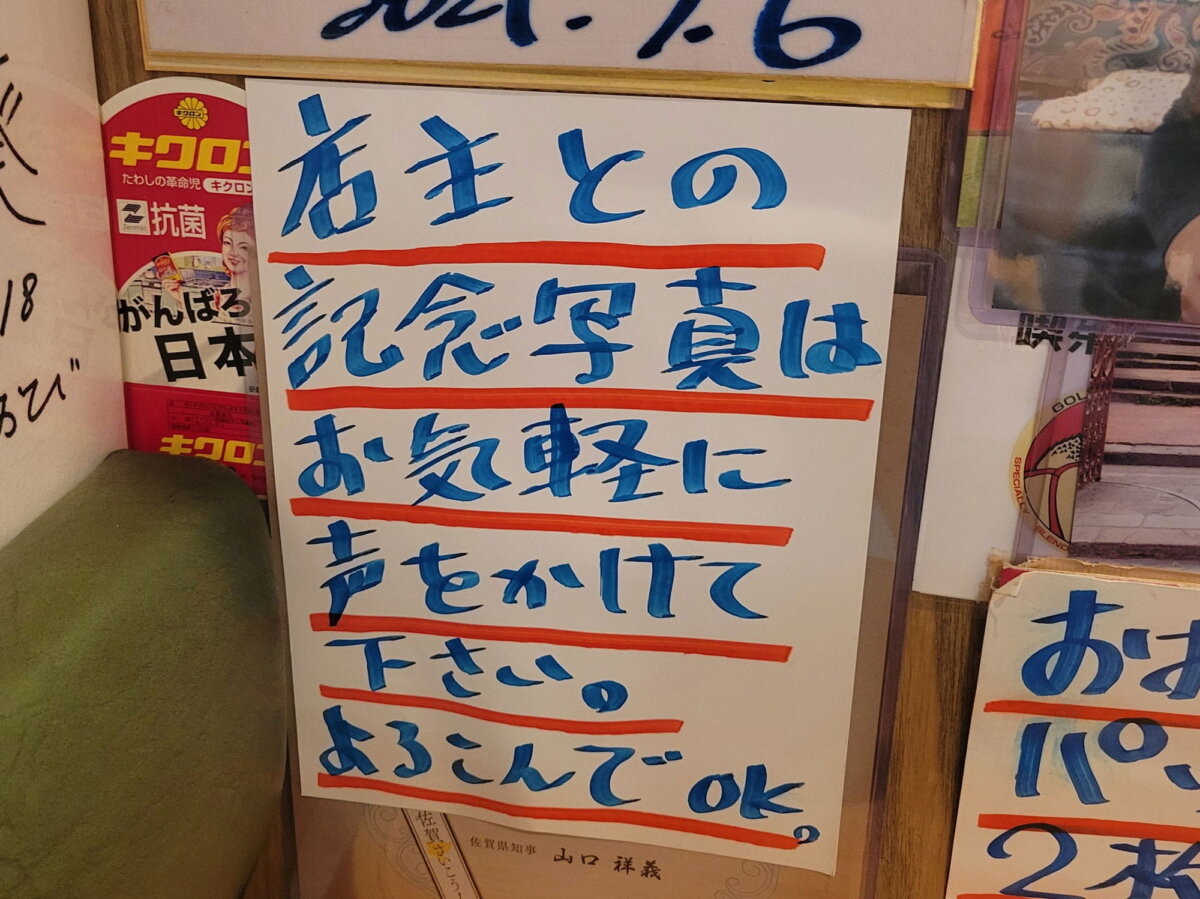 2021.7.6
キクロン
キクロン
たわしの革命児 キクロン
抗菌
がんばろ
日本
キクロ
18
店主との
記念写真は
お気軽に
声をかけて
下さい。
よろこんでOK。
佐賀さいこう!
佐賀県知事 山口 祥義
喫茶
GOL
SPECIALLY BLEND
おは
パン
2枚